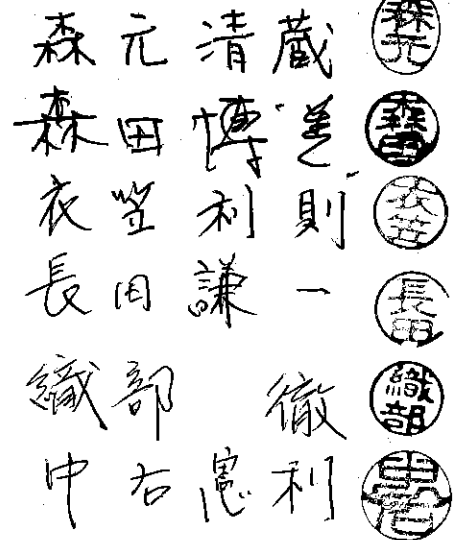 森元清蔵 森元
森田博美 森田
衣笠利則 衣笠
長田謙一 長田
織部 徹 織部
中右憲利 中右